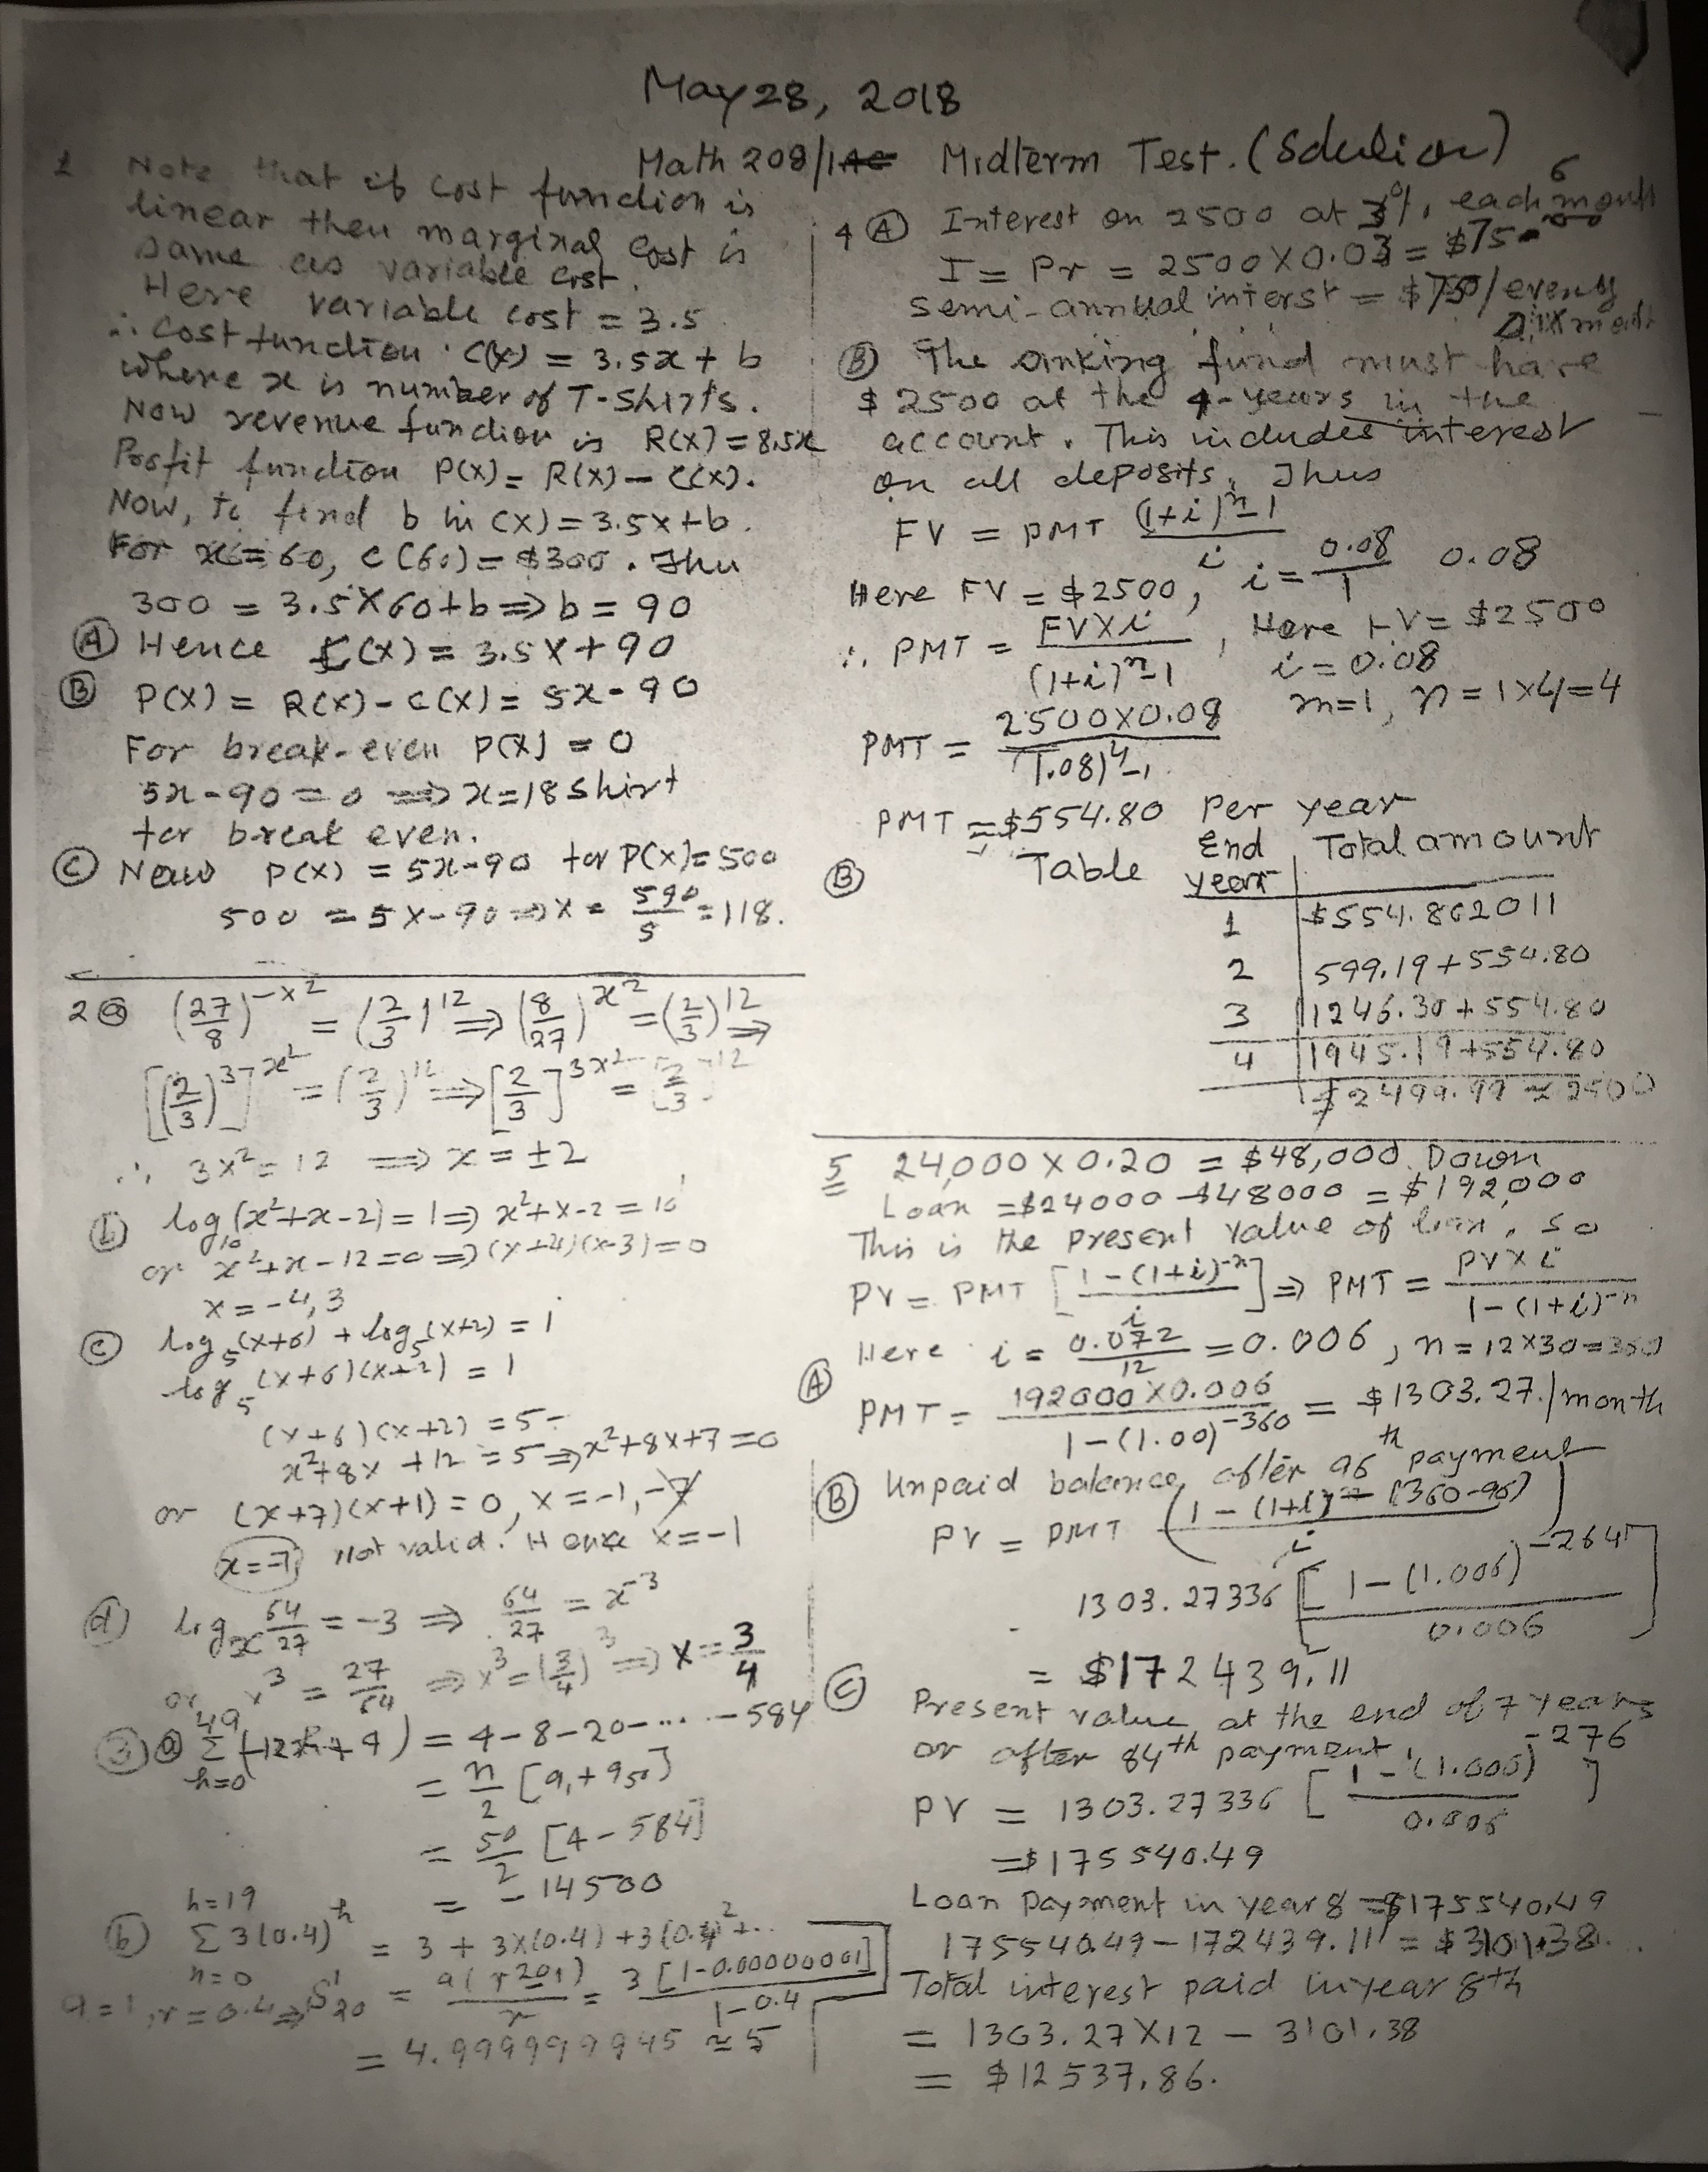 May 28, 2018
Math 208/ Midterm Test. (Solution)
1 Note that if cost function is
linear then marginal cost is
same as variable cost.
Here variable cost = 3.5
∴ Cost function C(x) = 3.5x + b
where x is number of T-Shirts.
Now revenue function is R(x) = 8.5x
Profit function P(x) = R(x) - C(x).
Now, to find b in C(x) = 3.5x+b.
For x = 60, C(60) = $300. Thu
300 = 3.5X60+b => b = 90
(A) Hence C(x) = 3.5x + 90
(B) P(x) = R(x) - C(x) = 5x - 90
For break-even P(x) = 0
5x - 90 = 0 => x = 18 Shirt
for break even.
(C) Now P(x) = 5x-90 for P(x) = 500
500 = 5x-90 => x = 590/5 = 118.
2 (a) (27/8)^-x^2 = (2/3)^12 => (8/27)^x^2 = (2/3)^12 =>
[(2/3)^3]^x^2 = (2/3)^12 => [2/3]^3x^2 = [2/3]^12
∴ 3x^2 = 12 => x = ±2
(b) log_10 (x^2+x-2) = 1 => x^2+x-2 = 10^1
or x^2+x-12=0 => (x+4)(x-3)=0
x = -4, 3
(c) log_5 (x+6) + log_5 (x+2) = 1
log_5 (x+6)(x+2) = 1
(x+6)(x+2) = 5
x^2+8x+12 = 5 => x^2+8x+7=0
or (x+7)(x+1) = 0, x = -1, -7
x=-7 not valid. Hence x = -1
(d) log_x 64/27 = -3 => 64/27 = x^-3
or x^3 = 27/64 => x^3 = (3/4)^3 => x = 3/4
(3) (a) 49 Σ n=0 (-12n+4) = 4-8-20-....-584
= n/2 [a_1 + a_50]
= 50/2 [4-584]
= -14500
(b) n=19 Σ n=0 3(0.4)^n = 3 + 3X(0.4) + 3(0.4)^2+..
r = 0.4 => S_20 = = 3[1-0.00000001]/1-0.4
= 4.9999999945 ≈ 5
4 (A) Interest on 2500 at 3%, each 6 month
I = Pr = 2500 X 0.03 = $75.00
Semi-annual interst = $75 / every six month
(B) The sinking fund must have
$2500 at the 4-years in the
account. This includes interest
on all deposits. Thus
FV = PMT (1+i)^n-1 / i
Here FV = $2500, i = 0.08/1 0.08
∴ PMT = FVXi / (1+i)^n-1, Here FV = $2500
i = 0.08
m=1, n = 1x4=4
PMT = 2500X0.08 / (1.08)^4-1
PMT = $554.80 Per year
(B) Table End year Total amount
1 $554.802011
2 599.19+554.80
3 1246.30+554.80
4 1945.19+554.80
$2499.99 ≈ 2500
5 24,000 X 0.20 = $48,000 Down
Loan = $24000 - $48000 = $192,000
This is the present value of loan, so
PV = PMT [1-(1+i)^-n / i] => PMT = PVXi / 1-(1+i)^-n
Here i = 0.072/12 = 0.006, n = 12X30=360
(A) PMT = 192000 X0.006 / 1-(1.00)^-360 = $1303.27./month
(B) Unpaid balance, after 96th payment
PV = PMT (1-(1+i)^-(360-96) / i)
1303.27336 [1-(1.006)^-264 / 0.006]
= $172439.11
(C) Present value, at the end of 7 years
or after 84th payment.
PV = 1303.27336 [1-(1.006)^-276 / 0.006]
= $175540.49
Loan payment in year 8 = $175540.49
175540.49 - 172439.11 = $3101.38.
Total interest paid in year 8th
= 1303.27X12 - 3101.38
= $12537.86.